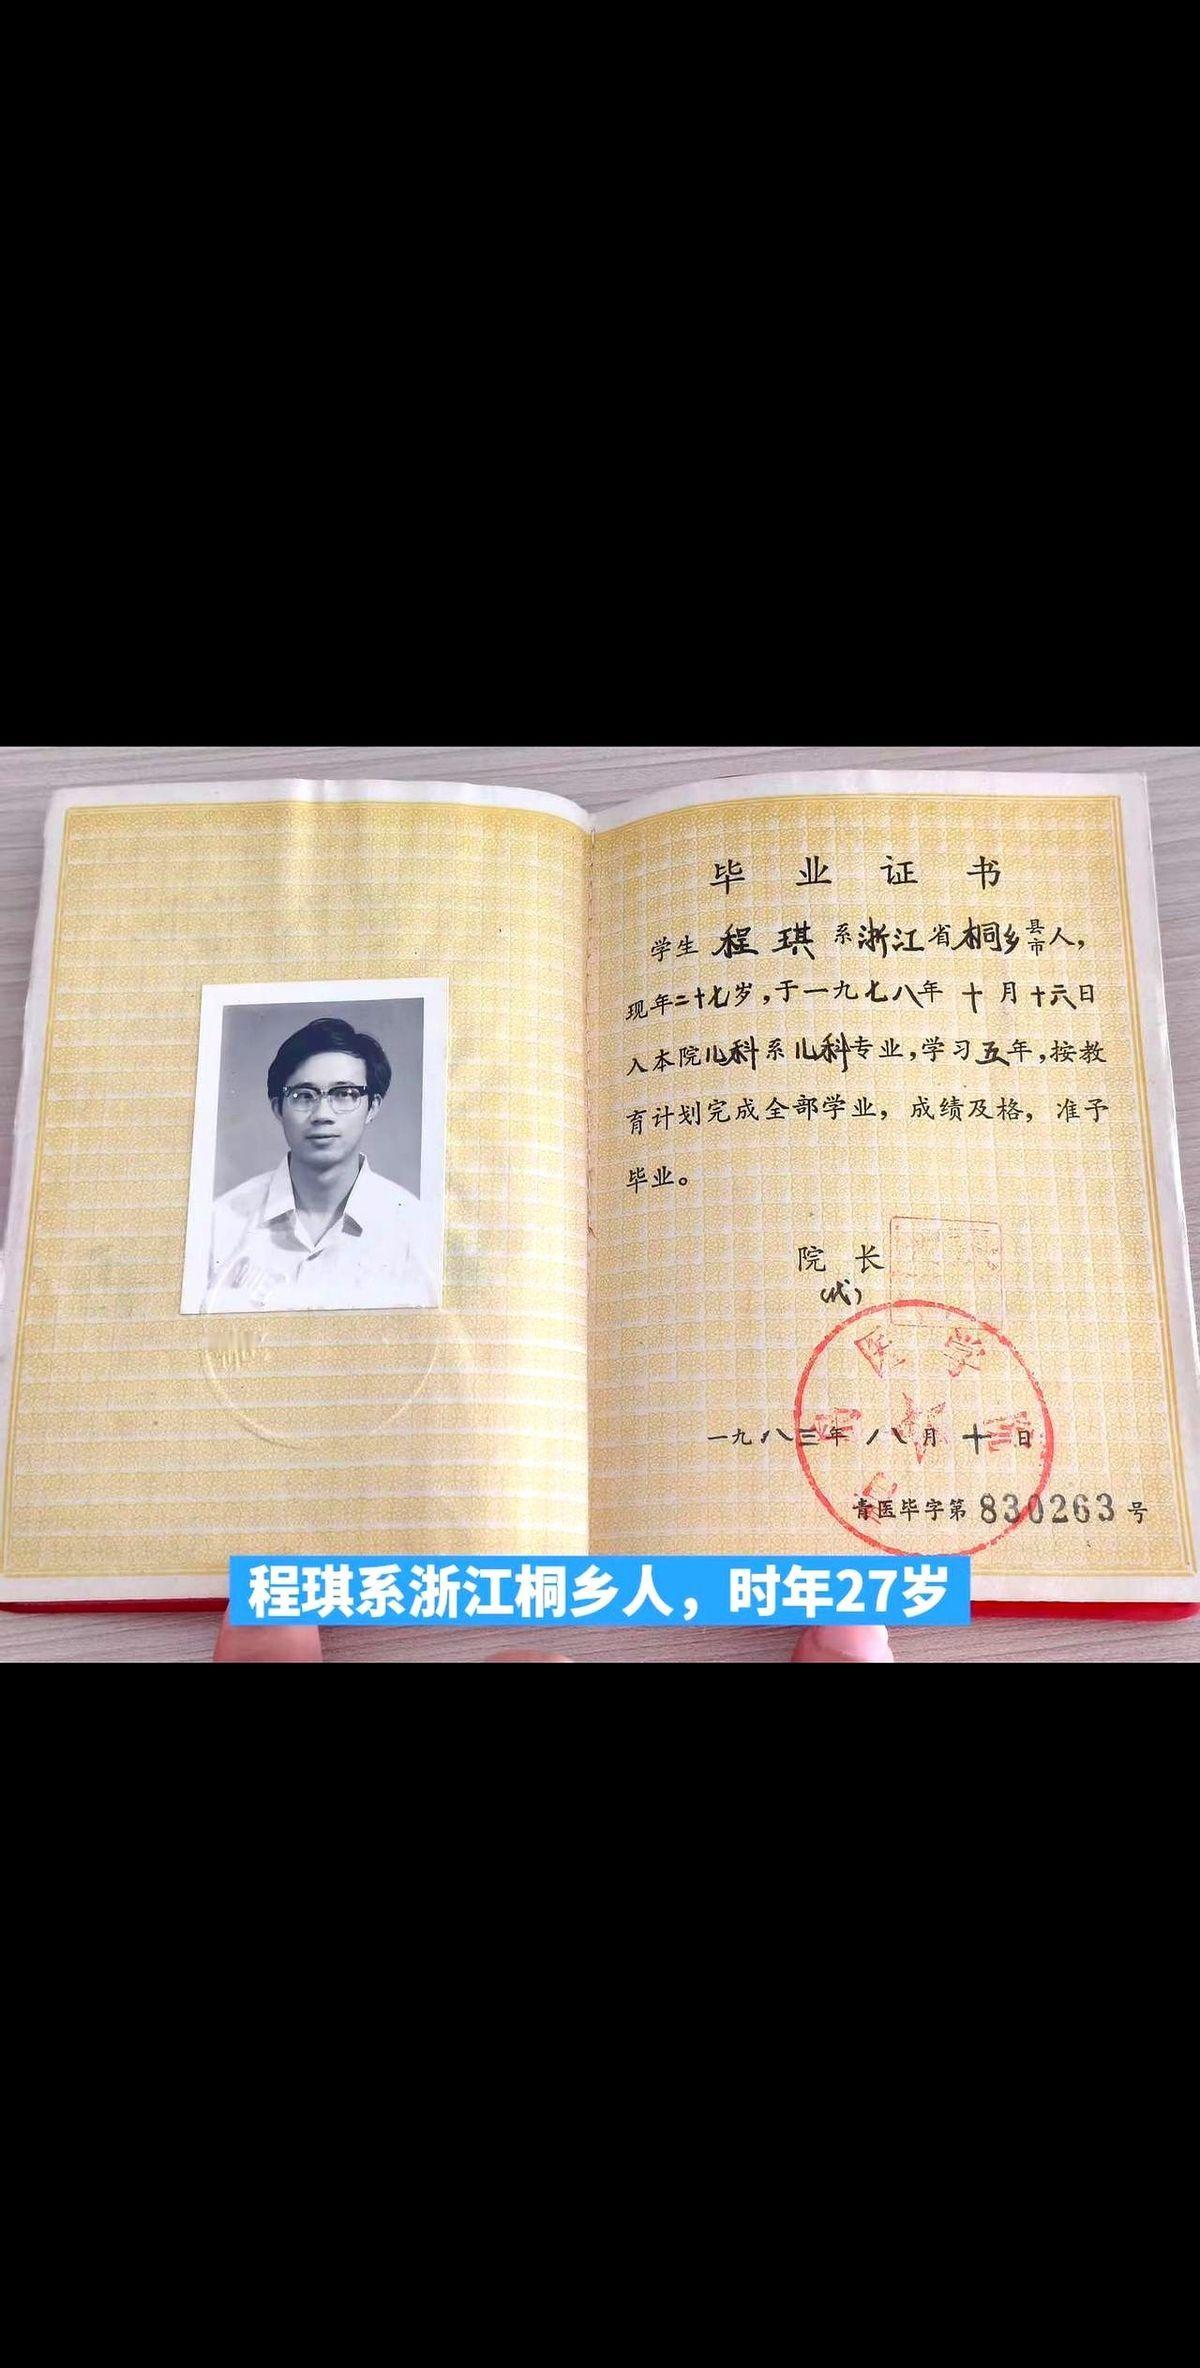 毕业证书
学生 程琪 系浙江省桐乡县市人，
现年二十七岁，于一九七八年 十 月十六日
入本院儿科系儿科专业，学习五年，按教
育计划完成全部学业，成绩及格，准予
毕业。
院 长
（代）
医学
一九八三年 八月 十 日
青医毕字第 830263 号
程琪系浙江桐乡人，时年27岁